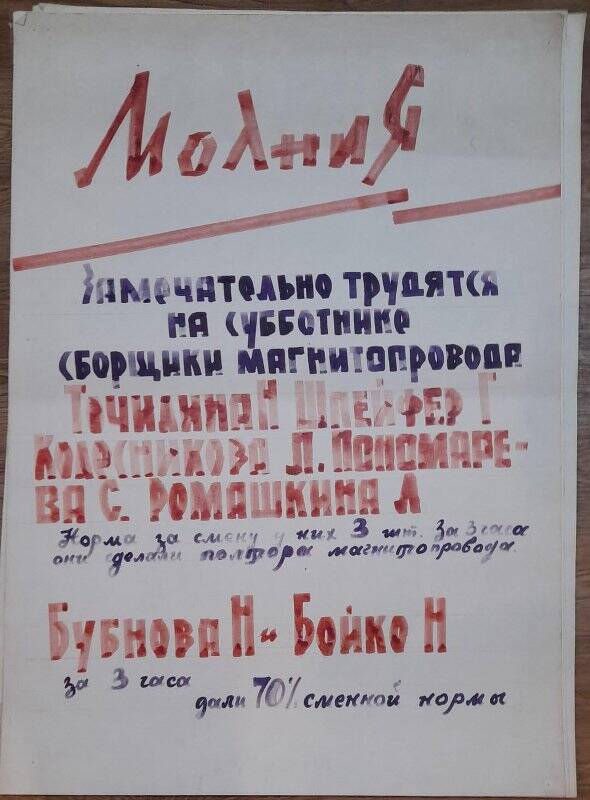 Молния
Замечательно трудятся
на субботнике
сборщики магнитопровода
Точилина Н Шлейфер Г
Колесникова Л. Пономаре-
ва С. Ромашкина Л
Норма за смену у них 3 шт. За 3 часа
они сделали полторы магнитопровода.
Бубнова Н и Бойко Н
за 3 часа
дали 70% сменной нормы